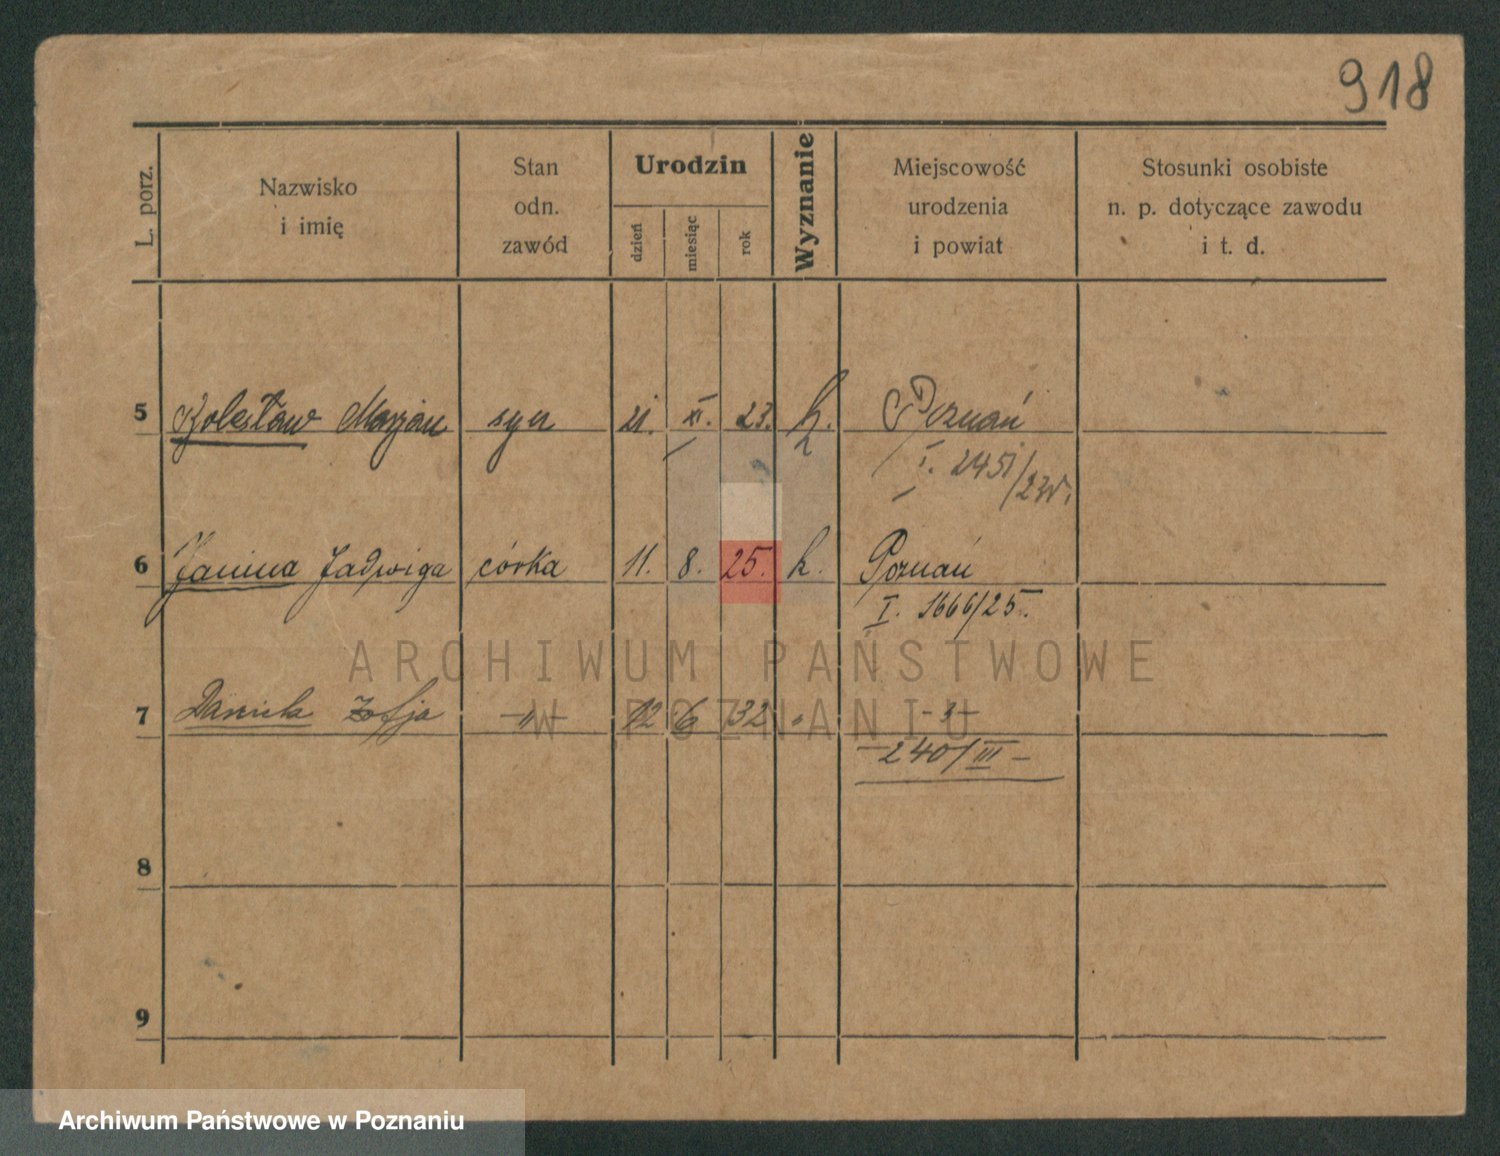 918
L. porz.
Nazwisko
i imię
Stan
odn.
zawód
Urodzin
dzień
miesiąc
rok
Wyznanie
Miejscowość
urodzenia
i powiat
Stosunki osobiste
n. p. dotyczące zawodu
i t. d.
5 Bolesław Marjan syn 21. XI. 23. k. Poznań
I. 2451/23
6 Janina Jadwiga córka 11. 8. 25. k. Poznań
I. 1666/25.
ARCHIWUM PAŃSTWOWE
7 Daniela Zofja -"- 12 6 32 " -"-
W POZNANIU
-240/III-
8
9
Archiwum Państwowe w Poznaniu